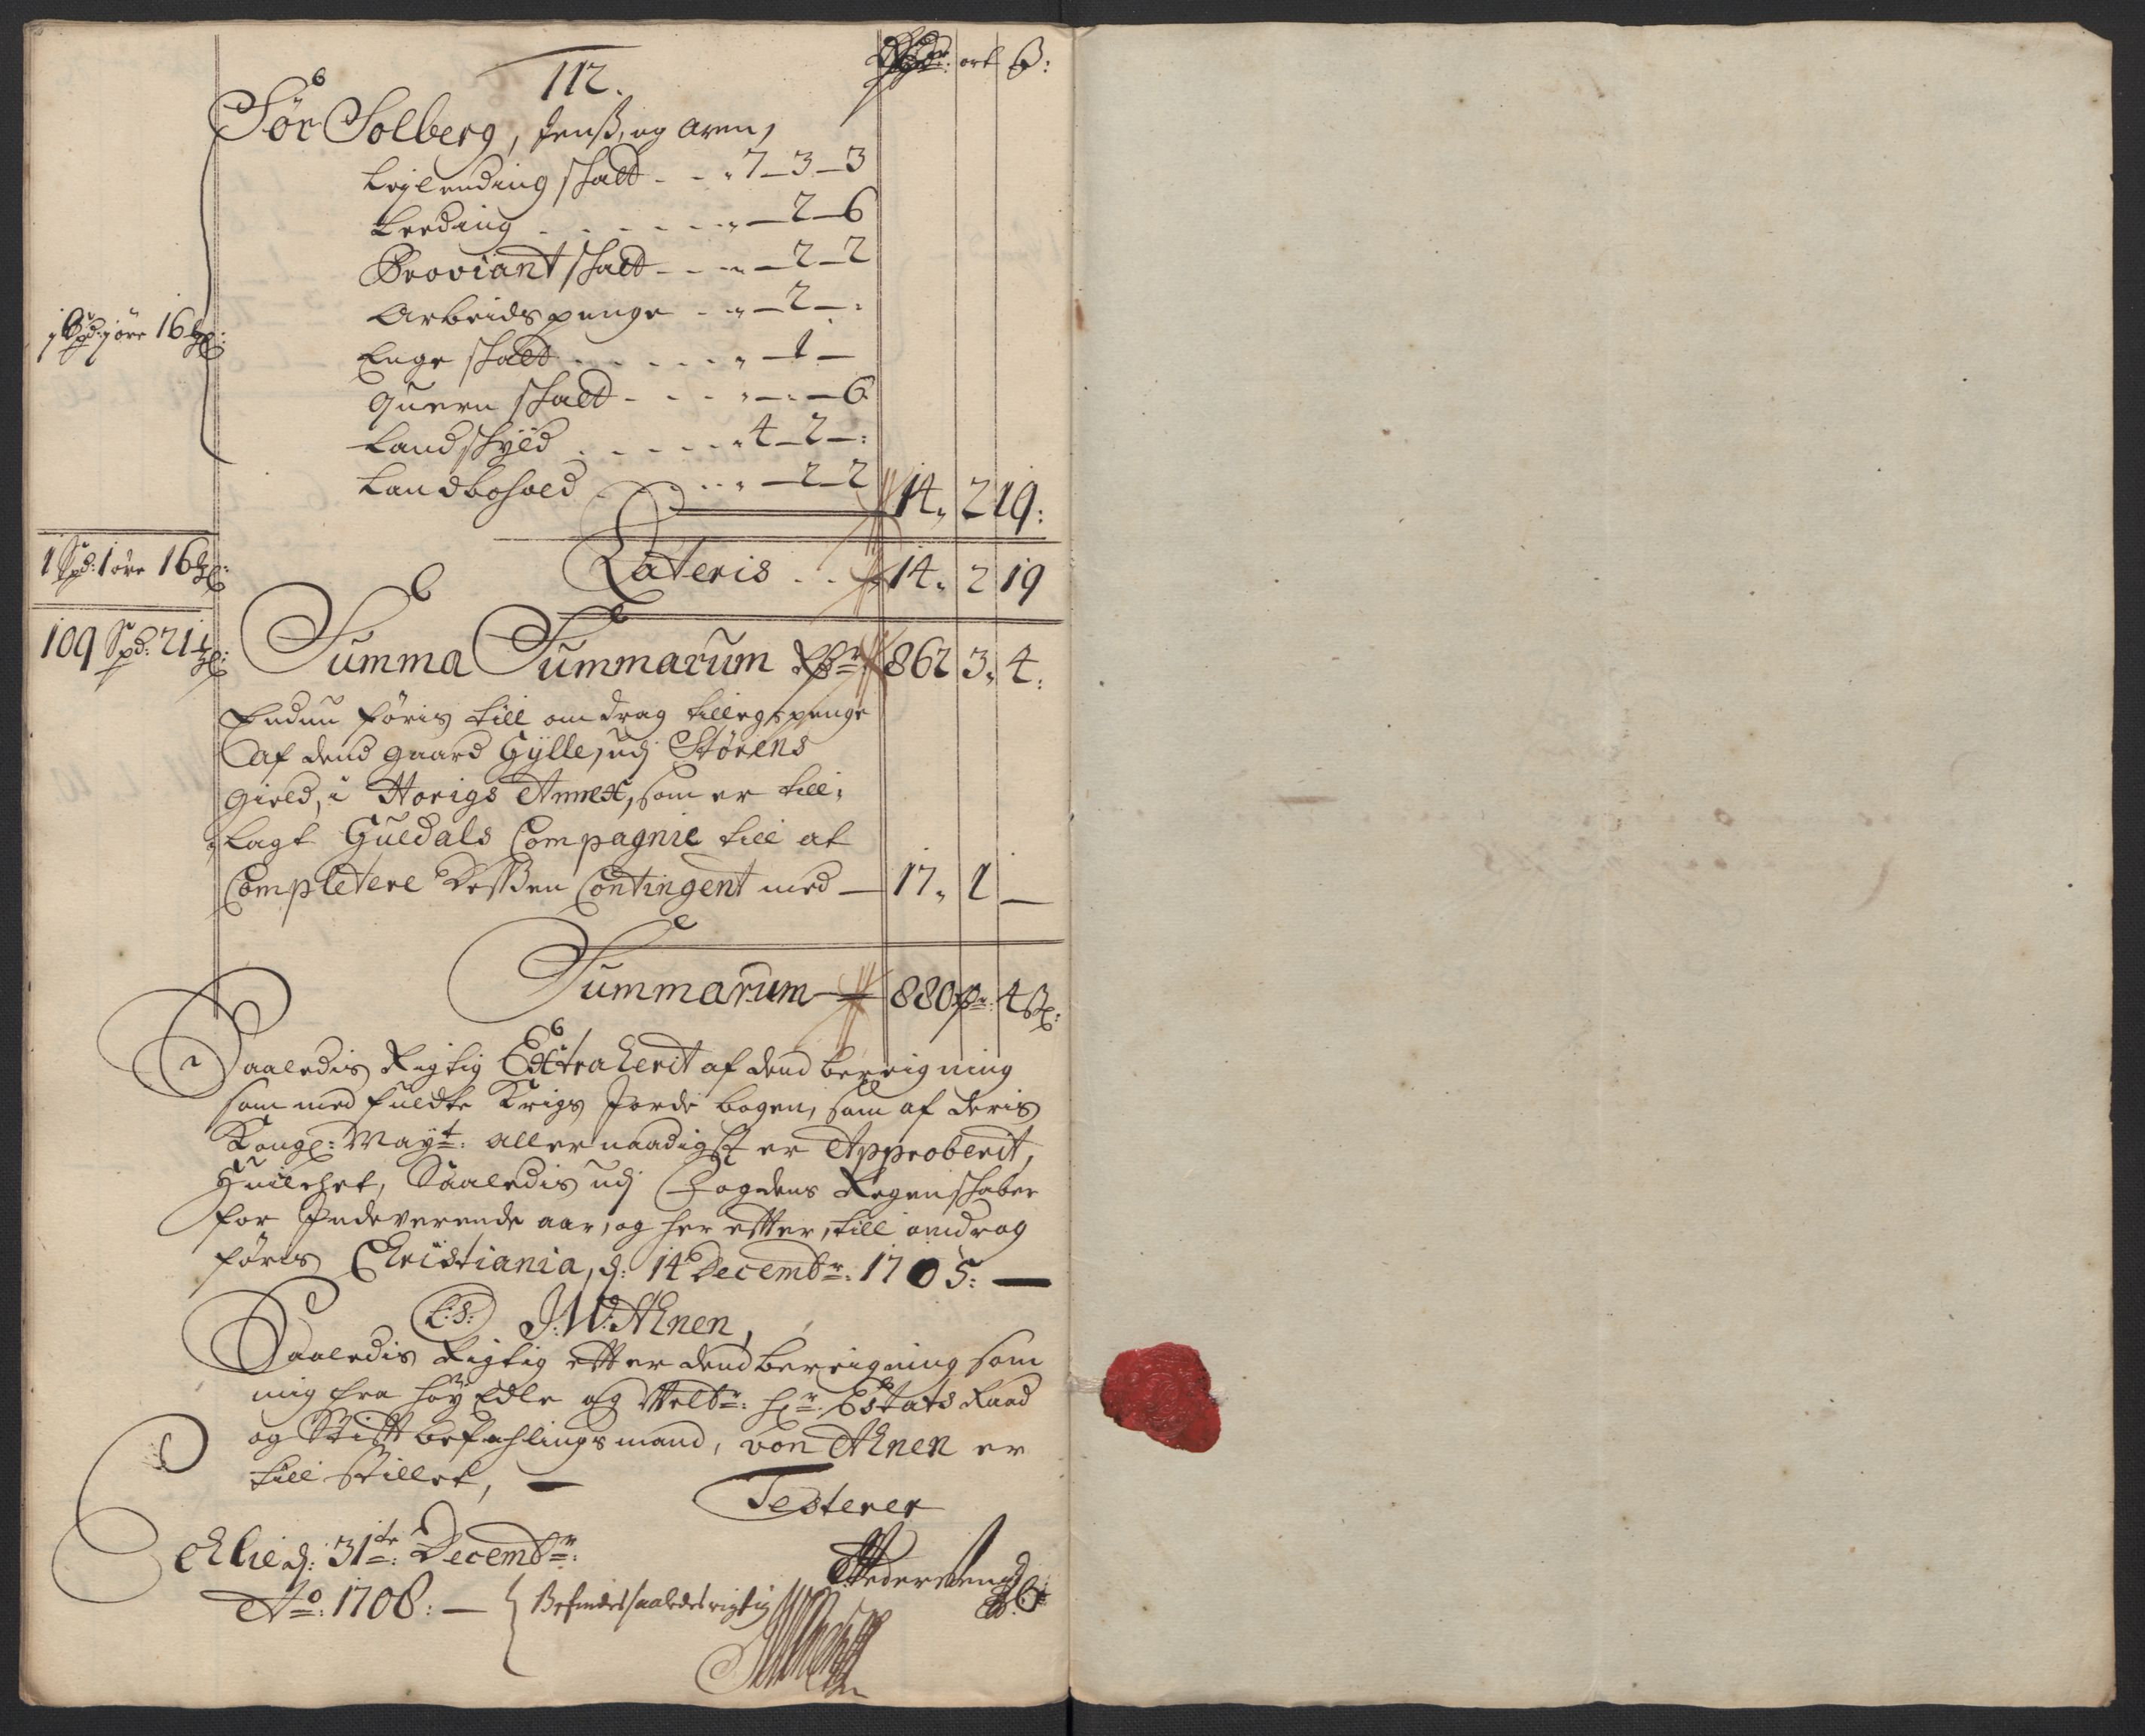 112.
Rdr: ort ß:
Sør Solberg, Jenß, og Aren,
Leylending skatt - - „ 7 – 3 – 3
Leeding - - - - - „ – 2 – 6
Proviant skatt - - - „ – 2 – 2
Arbeids penge - „ – 2 – :
1 Spd: 1 øre 16 ₰:
Enge skatt - - - - - „ – 1 –
Quern skatt - - - „ – „ – 6
Landskyld - - - - - „ 4 – 2 – :
Landbohold - - - „ – 2 – 2
14„ 2 19:
1 Spd: 1 øre 16 ₰:
Lateris - - 14„ 2 19
109 Spd: 21 ₰:
Summa Summarum Rdr 862 3„ 4:
Endnu føris till omdrag tillegspenge
af dend gaard Gylle, udj Størens
gield, i Horigs Annex, som er till:
lagt Guldals Compagnie till at
Completere dessen Contingent med — 17„ 1 —
Summarum — 880 Rdr: 4 ß:
Saaledis Rigtig Extraherit af dend bereigning
som med fuldte Krigs Jorde bogen, som af deris
Kongl: Mayt: allernaadigst er Approberit,
Huilchet, Saaledis udj Fogdens Regenskaber
for Indeverende aar, og her etter, till omdrag
føris Christiania, d: 14 Decembr: 1705: —
L:S: J:W:Ahnen,
Saaledis Rigtig etter dend bereigning som
mig fra høy Edle og Welbr: Hr: Estats Raad
og Stift befahlingsmand, von Ahnen er
till stillet, —
Testerer
Elie d: 31te: Decembr:
Ao: 1708: —
Befindes saaledes rigtig